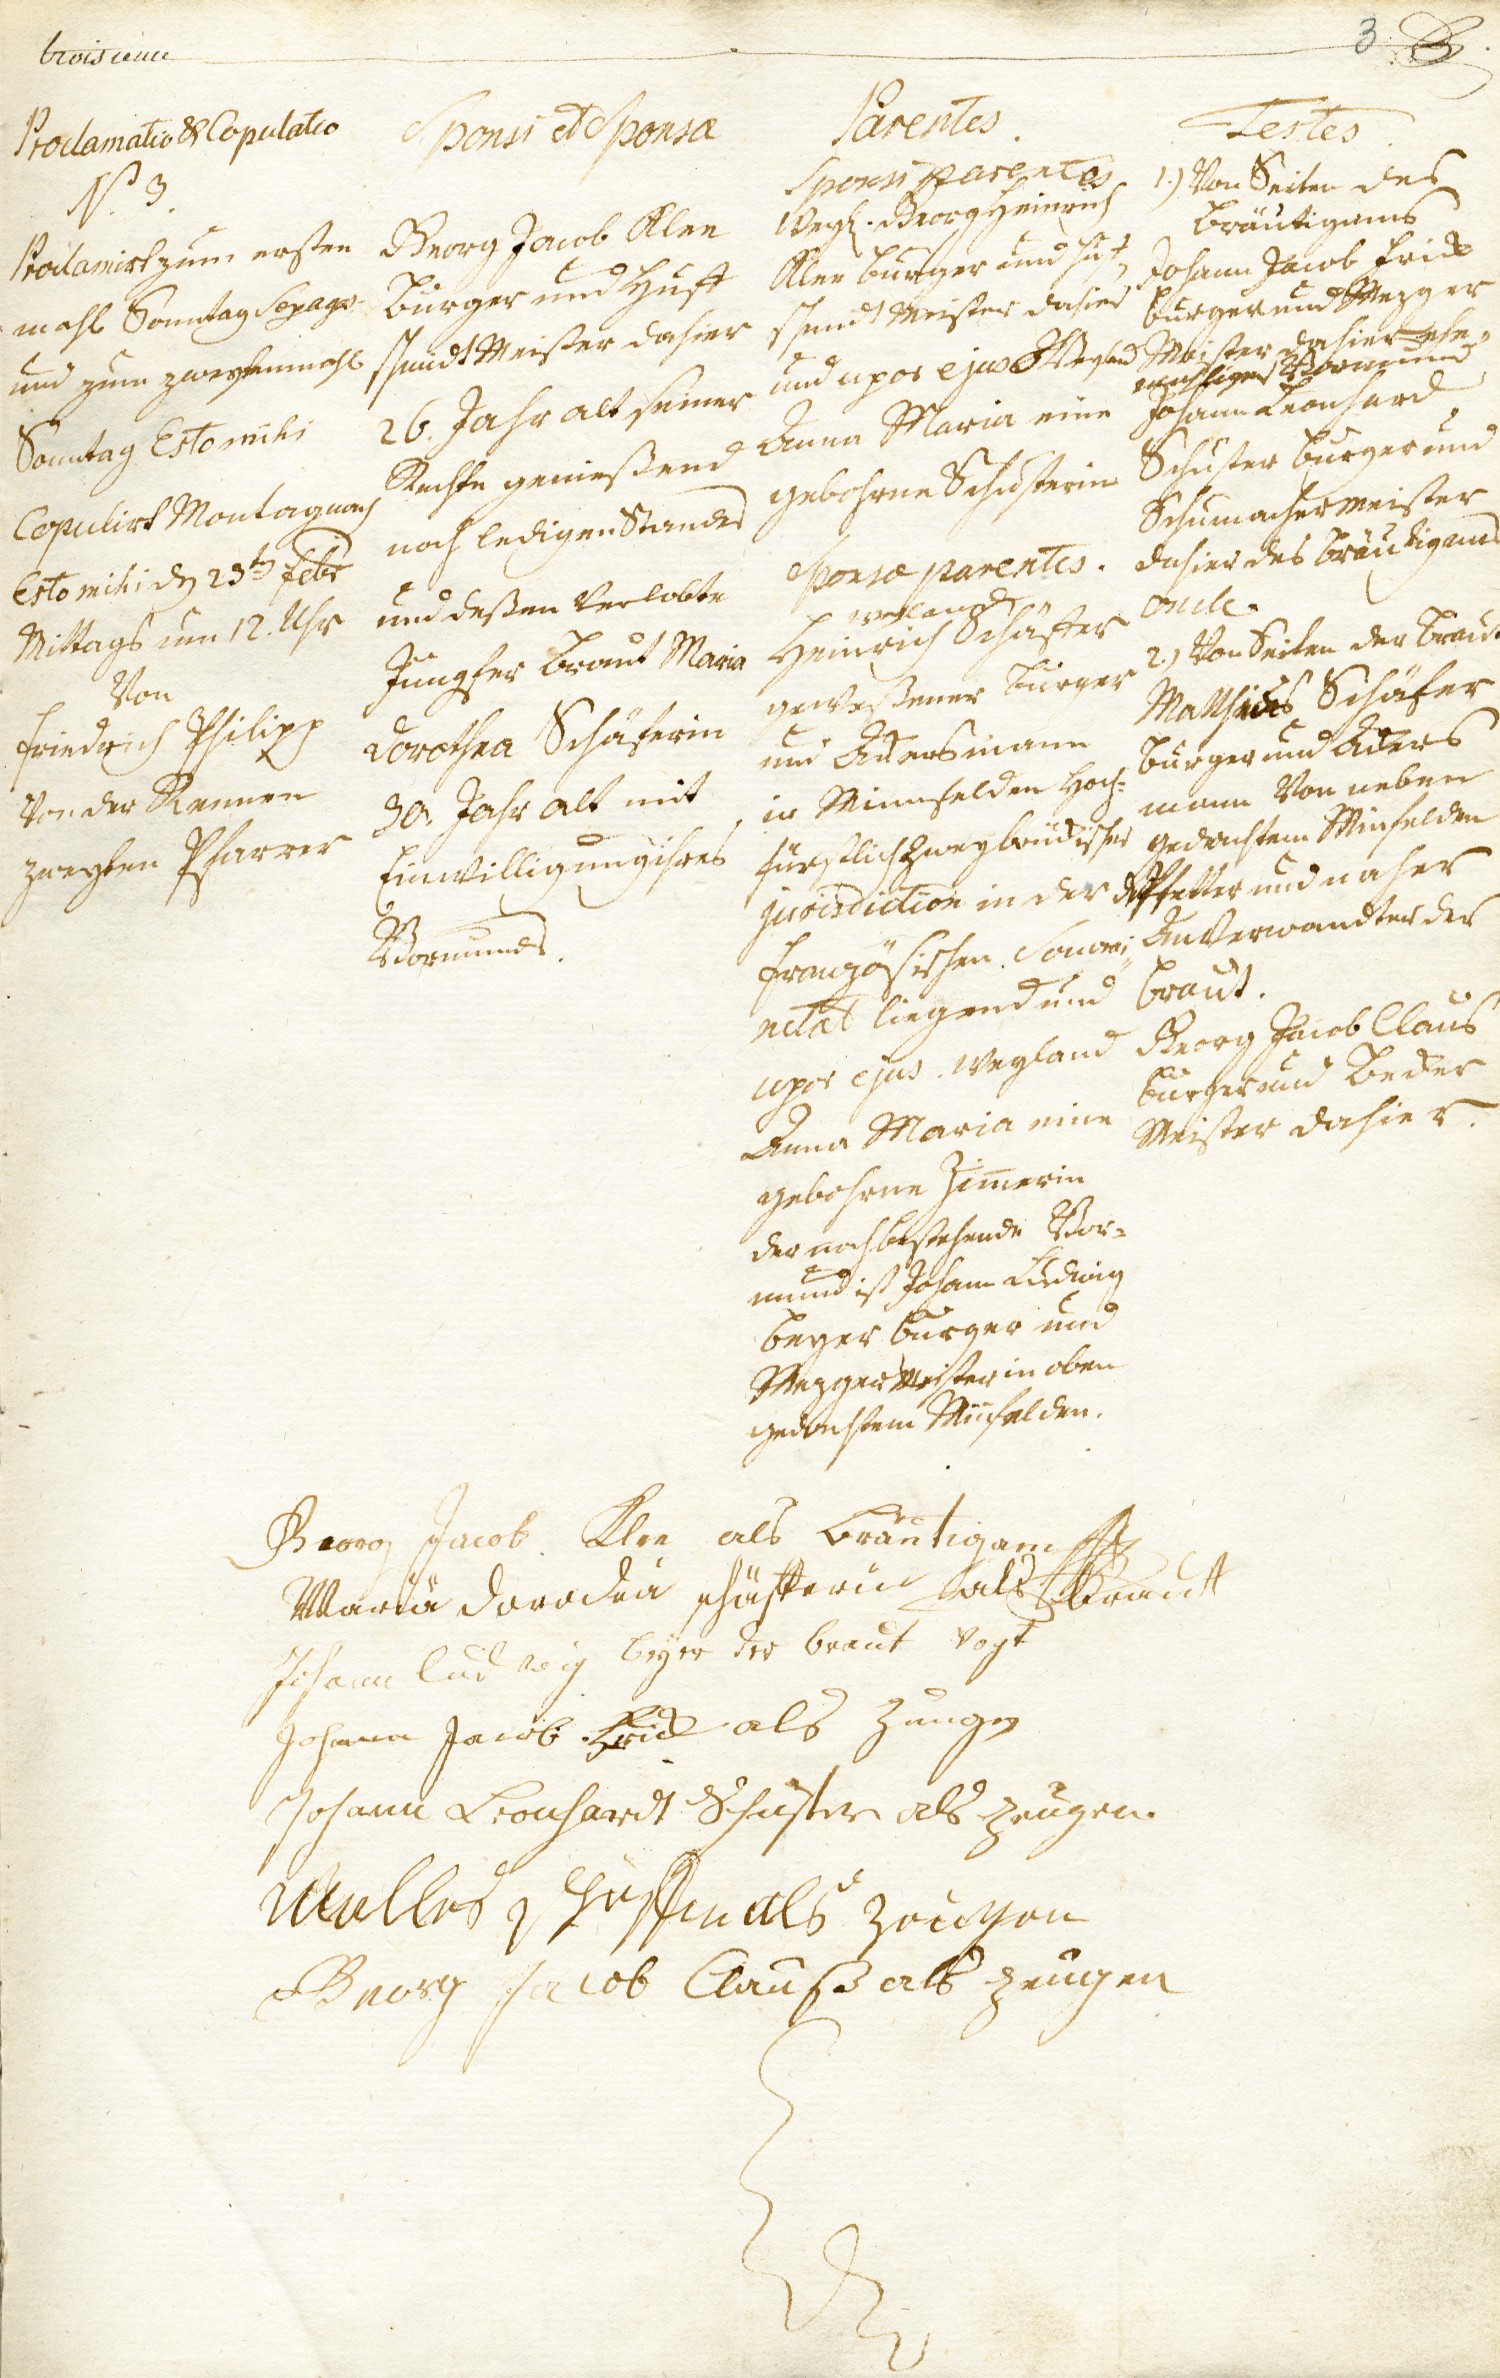 troisieme
3
Proclamatio & Copulatio
N. 3.
Proclamirt zum ersten
mahl Sonntag Sepages
und zum zweytenmahl
Sonntag Estomihi
Copulirt Montag nach
Estomihi d 23ten Febr
Mittags um 12. Uhr
Von
Friedrich Philipp
Von der Rennen
zweyten Pfarrer
Sponsi et Sponsæ
Georg Jacob Klee
burger und Huff
schmidt Meister dahier
26. Jahr alt seiner
Rechte genießend
noch ledigen Standes
und deßen Verlobte
Jungfer braut Maria
Dorothea Schäferin
30. Jahr alt mit
Einwilligung ihres
Vormunds.
Parentes.
Sponsi parentes
Weyl. Georg Heinrich
Klee burger und Huf
schmidt Meister dahier
und uxor ejus Weyland
Anna Maria eine
gebohrne Schusterin
Sponsæ parentes.
weyland
Heinrich Schäffer
geweßener burger
und Ackersmann
in Minnfelden Hoch-
fürstlich Zweybrückischer
jurisdiction in der
französischen Souverai
netät liegend und
uxor ejus. weyland
Anna Maria eine
gebohrne Zimerin
der noch bestehende Vor-
mund ist Johann Ludwig
beyer burger und
Mezger Meister in oben
gedachtem Minfelden.
Testes.
1.) Von Seiten des
bräutigams
Johann Jacob Frick
burger und Mezger
Meister dahier ehe-
mahliger Vormund
Johann Leonhard
Schuster burger und
Schumachermeister
dahier des bräutigams
oncle.
2.) Von Seiten der braut
Matthias Schäfer
burger und Ackers
mann Von neben
gedachtem Minfelden
Pfetter und naher
Anverwandter der
braut.
Georg Jacob Claus
burger und becker
Meister dahier.
Georg Jacob Klee als bräutigam
Maria dorodea schäfferin als Braut
Johann Ludwig beyer der braut vogt
Johann Jacob Frick als zeuge
Johann Leonhardt Schuster als zeugen.
als zeugen
Georg Jacob Clauß als zeugen